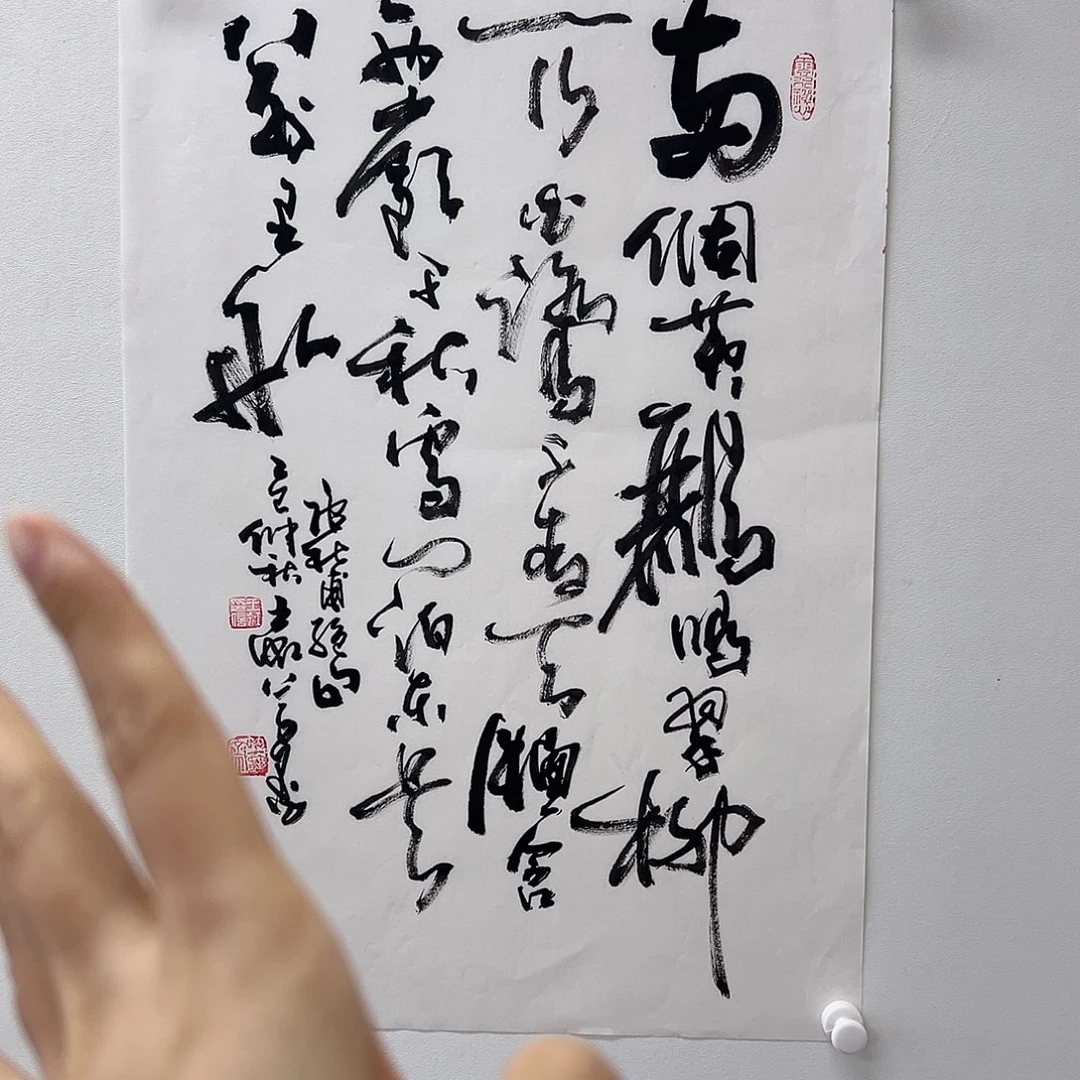 兩個黃鸝鳴翠柳
一行白鷺上青天窗含
西嶺千秋雪門泊東吳
萬里船
杜甫絕句
仲秋